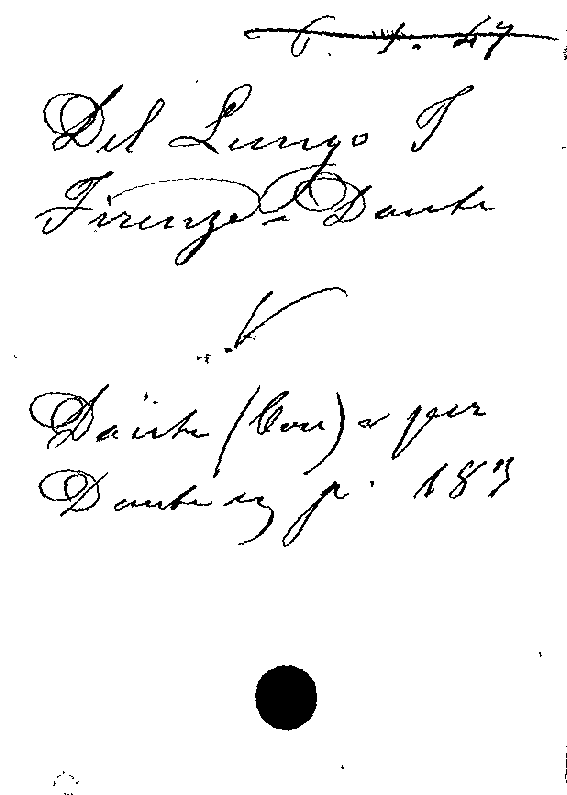 6. 4. 47
Del Lungo I
Firenze e Dante
V
Dante (Con) e per
Dante p. 183